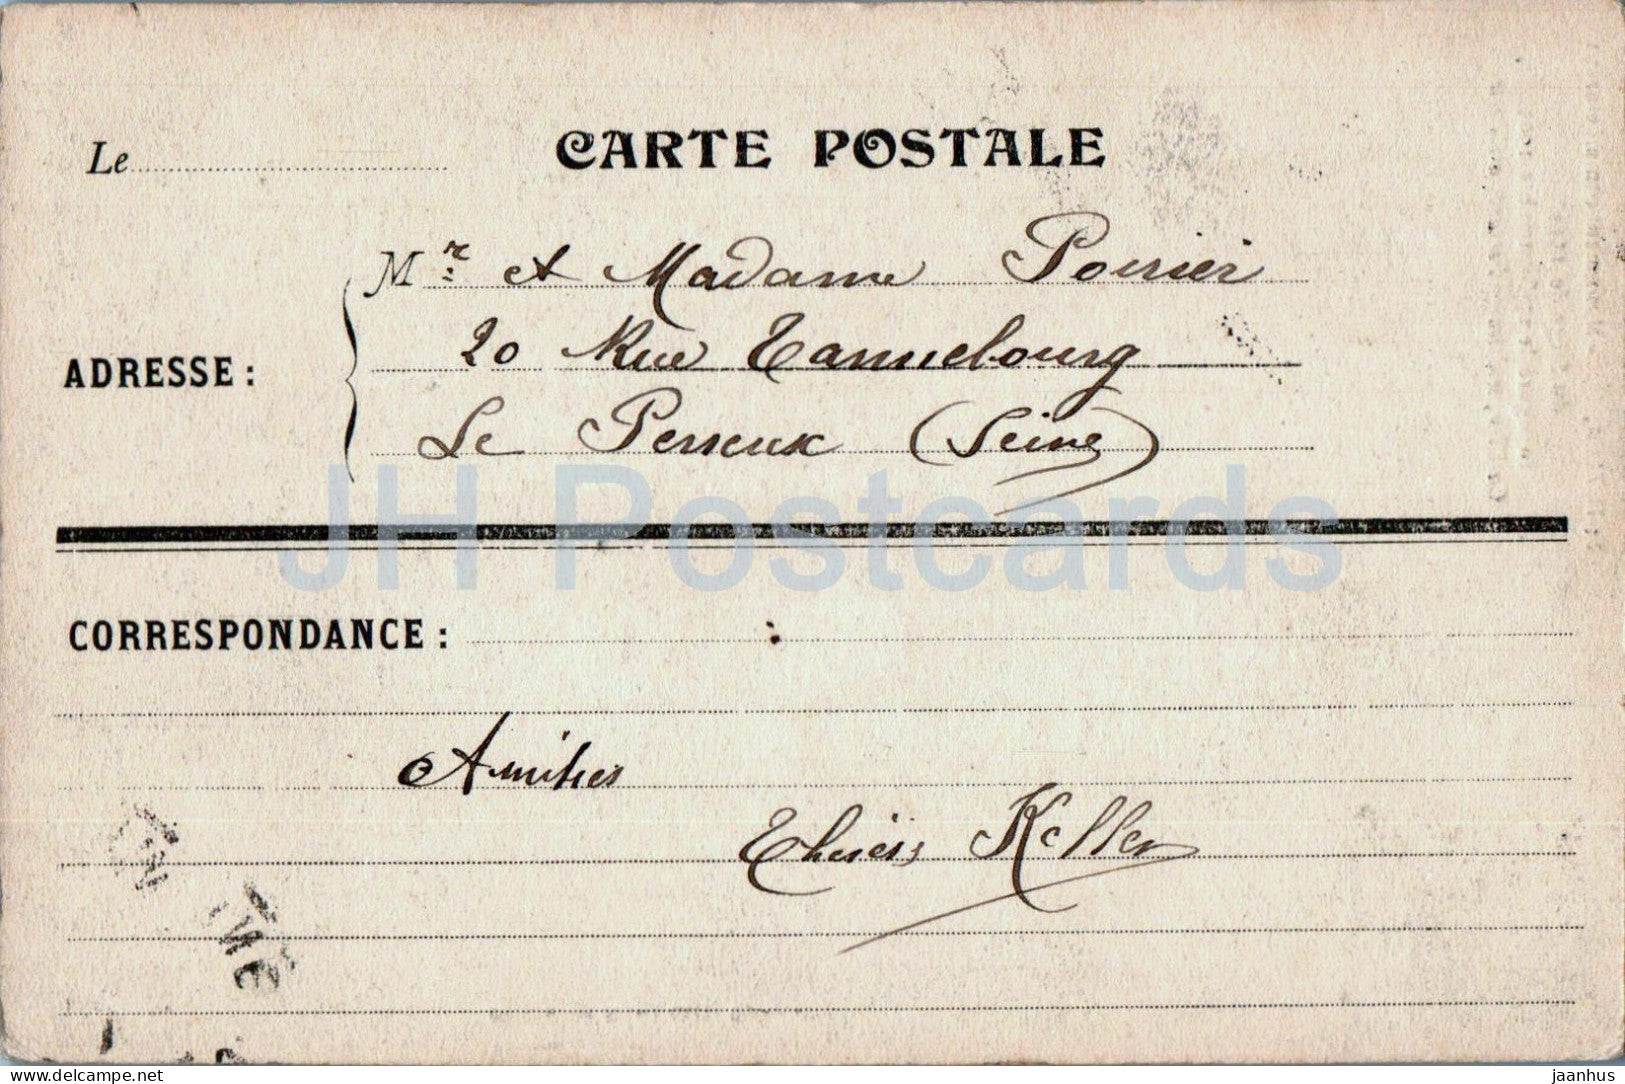 CARTE POSTALE
Le
Mr et Madame Poirier
ADRESSE :
20 Rue Tannebourg
Le Perreux (Seine)
JH Postcards
CORRESPONDANCE :
Amitiés
Keller
www.delcampe.net
jaanhus